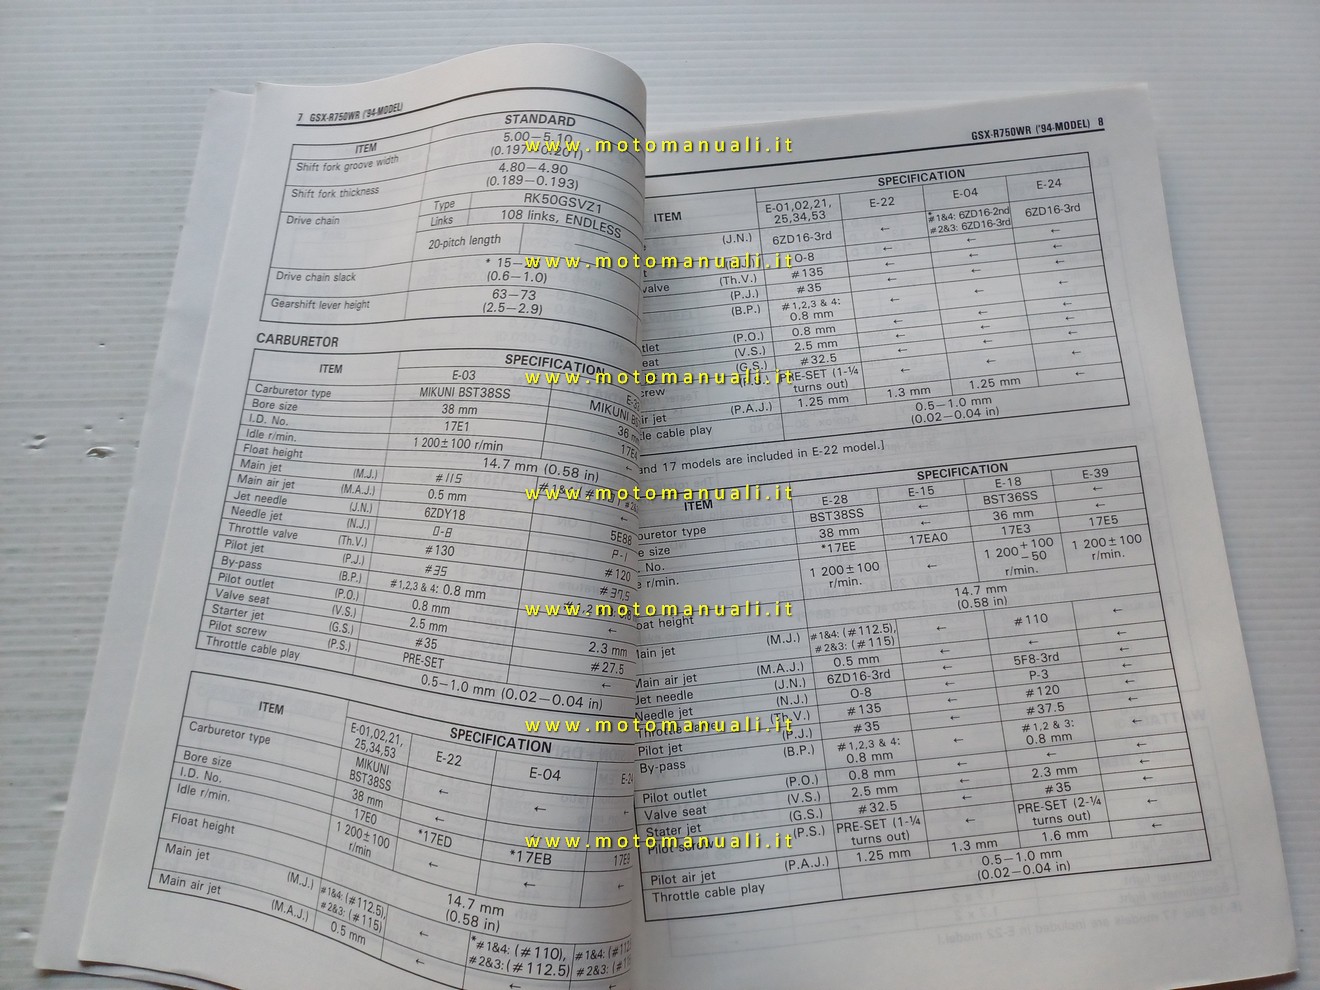 7 GSX-R750WR ('94-MODEL)
ITEM STANDARD
Shift fork groove width 5.00—5.10
(0.197—0.201)
Shift fork thickness 4.80—4.90
(0.189—0.193)
Drive chain Type RK50GSVZ1
Links 108 links, ENDLESS
20-pitch length
Drive chain slack * 15—
(0.6—1.0)
Gearshift lever height 63—73
(2.5—2.9)
CARBURETOR
ITEM SPECIFICATION
E-03
Carburetor type MIKUNI BST38SS MIKUNI
Bore size 38 mm 36
I.D. No. 17E1
Idle r/min. 1 200±100 r/min ←
Float height 14.7 mm (0.58 in)
Main jet (M.J.) #115
Main air jet (M.A.J.) 0.5 mm ←
Jet needle (J.N.) 6ZDY18 5E88
Needle jet (N.J.) O-8 P-1
Throttle valve (Th.V.) #130 #120
Pilot jet (P.J.) #35 #37.5
By-pass (B.P.) #1,2,3 & 4: 0.8 mm
Pilot outlet (P.O.) 0.8 mm ←
Valve seat (V.S.) 2.5 mm 2.3 mm
Starter jet (G.S.) #35 #27.5
Pilot screw (P.S.) PRE-SET ←
Throttle cable play 0.5—1.0 mm (0.02—0.04 in)
ITEM SPECIFICATION
E-01,02,21,
25,34,53 E-22 E-04
Carburetor type MIKUNI
BST38SS ← ←
Bore size 38 mm ← ←
I.D. No. 17E0 *17ED *17EB
Idle r/min. 1 200±100
r/min ← ←
Float height 14.7 mm
(0.58 in)
Main jet (M.J.) #1&4: (#112.5),
#2&3: (#115) ← *#1&4: (#110),
#2&3: (#112.5)
Main air jet (M.A.J.) 0.5 mm ← ←
GSX-R750WR ('94-MODEL) 8
ITEM SPECIFICATION
E-01,02,21,
25,34,53 E-22 E-04 E-24
(J.N.) 6ZD16-3rd ← *#1&4: 6ZD16-2nd
#2&3: 6ZD16-3rd 6ZD16-3rd
O-8 ← ← ←
(Th.V.) #135 ← ← ←
(P.J.) #35 ← ← ←
(B.P.) #1,2,3 & 4:
0.8 mm ← ← ←
(P.O.) 0.8 mm ← ← ←
(V.S.) 2.5 mm ← ← ←
(G.S.) #32.5 ← ← ←
PRE-SET (1-¼
turns out) ← ← ←
air jet (P.A.J.) 1.25 mm 1.3 mm 1.25 mm ←
cable play 0.5—1.0 mm
(0.02—0.04 in)
and 17 models are included in E-22 model.]
ITEM SPECIFICATION
E-28 E-15 E-18 E-39
BST38SS ← BST36SS ←
38 mm ← 36 mm ←
No. *17EE 17EA0 17E3 17E5
r/min. 1 200±100
r/min. ← 1 200 +100
−50
r/min. 1 200±100
r/min.
height 14.7 mm
(0.58 in)
jet (M.J.) #1&4: (#112.5),
#2&3: (#115) ← #110 ←
Main air jet (M.A.J.) 0.5 mm ← ← ←
Jet needle (J.N.) 6ZD16-3rd ← 5F8-3rd ←
Needle jet (N.J.) O-8 ← P-3 ←
Throttle valve (Th.V.) #135 ← #120 ←
Pilot jet (P.J.) #35 ← #37.5 ←
By-pass (B.P.) #1,2,3 & 4:
0.8 mm ← #1,2 & 3:
0.8 mm ←
Pilot outlet (P.O.) 0.8 mm ← ← ←
Valve seat (V.S.) 2.5 mm ← 2.3 mm ←
Stater jet (G.S.) #32.5 ← #35 ←
Pilot screw (P.S.) PRE-SET (1-¼
turns out) ← PRE-SET (2-¼
turns out) ←
Pilot air jet (P.A.J.) 1.25 mm 1.3 mm 1.6 mm ←
Throttle cable play 0.5—1.0 mm
(0.02—0.04 in)
www.motomanuali.it
www.motomanuali.it
www.motomanuali.it
www.motomanuali.it
www.motomanuali.it
www.motomanuali.it
www.motomanuali.it